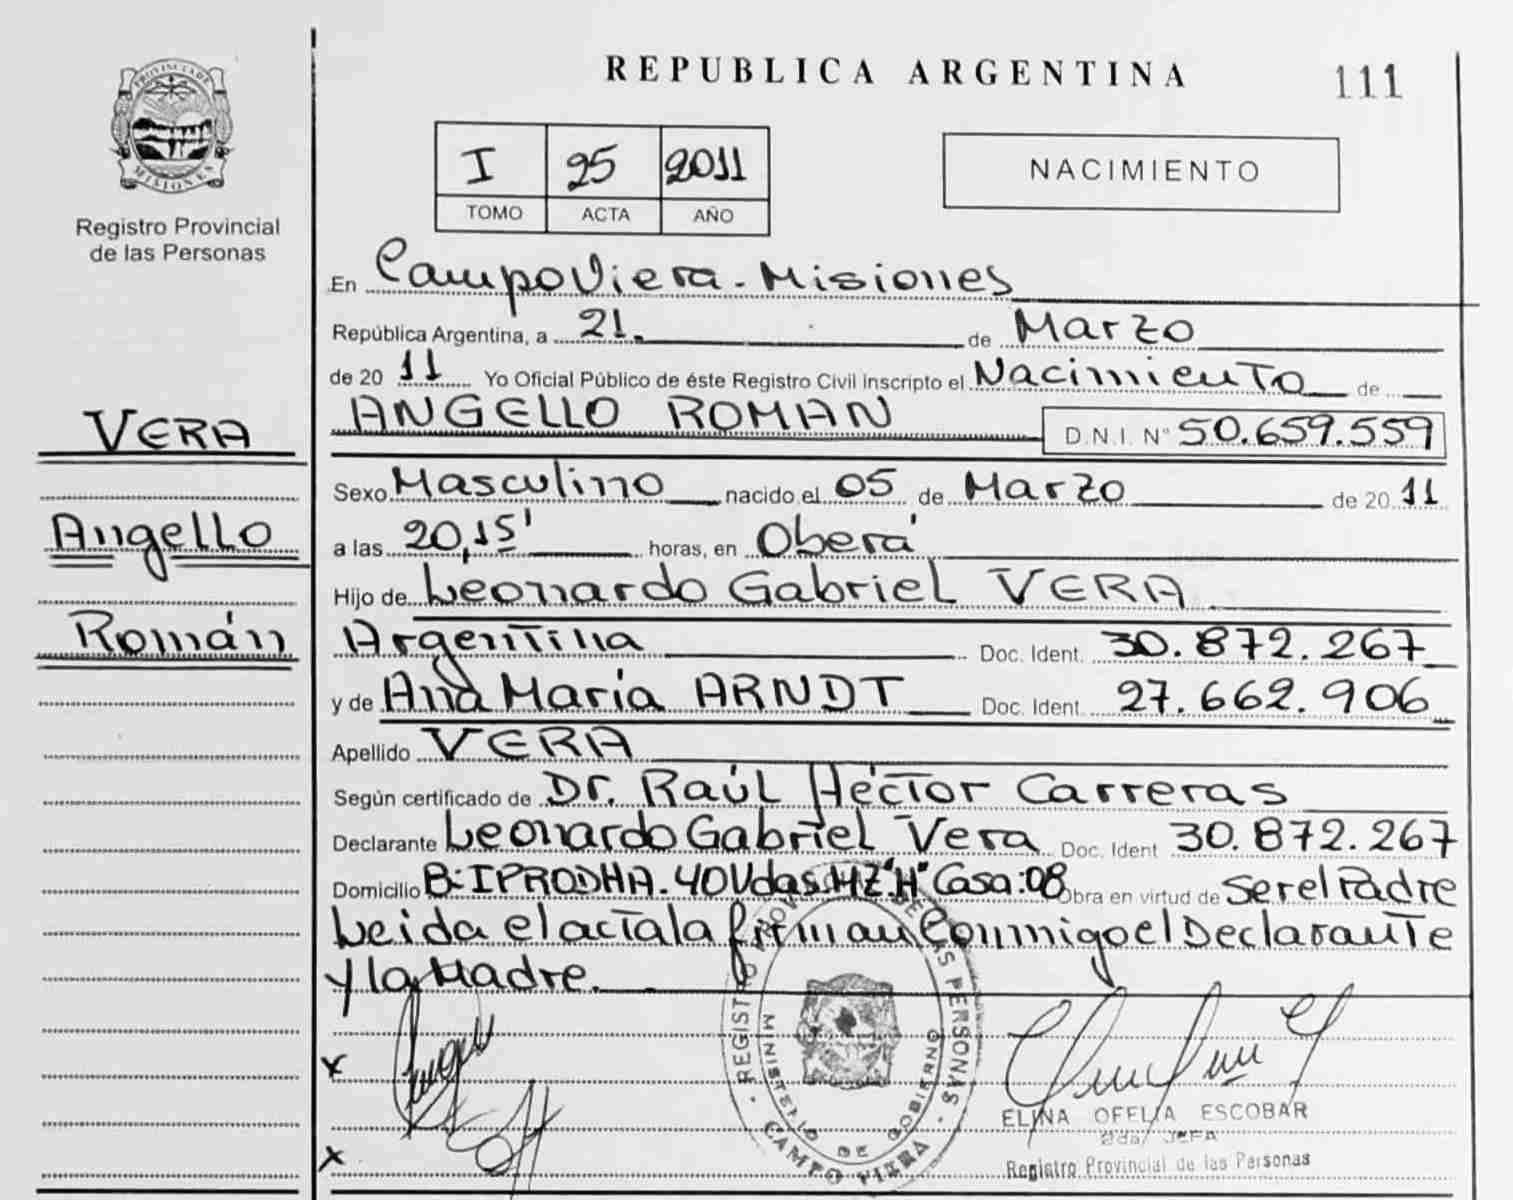 REPUBLICA ARGENTINA
111
PROVINCIA DE
MISIONES
Registro Provincial
de las Personas
I 25 2011
TOMO ACTA AÑO
NACIMIENTO
En Campo Viera - Misiones
República Argentina, a 21. de Marzo
de 20 11 Yo Oficial Público de éste Registro Civil inscripto el Nacimiento de
VERA
ANGELLO ROMAN D.N.I. N° 50.659.559
Sexo Masculino nacido el 05 de Marzo de 20 11
Angello
a las 20,15' horas, en Oberá
Hijo de Leonardo Gabriel VERA
Román
Argentina Doc. Ident. 30.872.267
y de Ana María ARNDT Doc. Ident. 27.662.906
Apellido VERA
Según certificado de Dr. Raúl Héctor Carreras
Declarante Leonardo Gabriel Vera Doc. Ident 30.872.267
Domicilio B: IPRODHA. 40 Vdas. MZ "H" Casa: 08 Obra en virtud de Ser el Padre
Leida el acta la firman Conmigo el Declarante
y la Madre.
X
X
REGISTRO PROVINCIAL DE LAS PERSONAS
MINISTERIO DE GOBIERNO
CAMPO VIERA
ELINA OFELIA ESCOBAR
2da. JEFA
Registro Provincial de las Personas